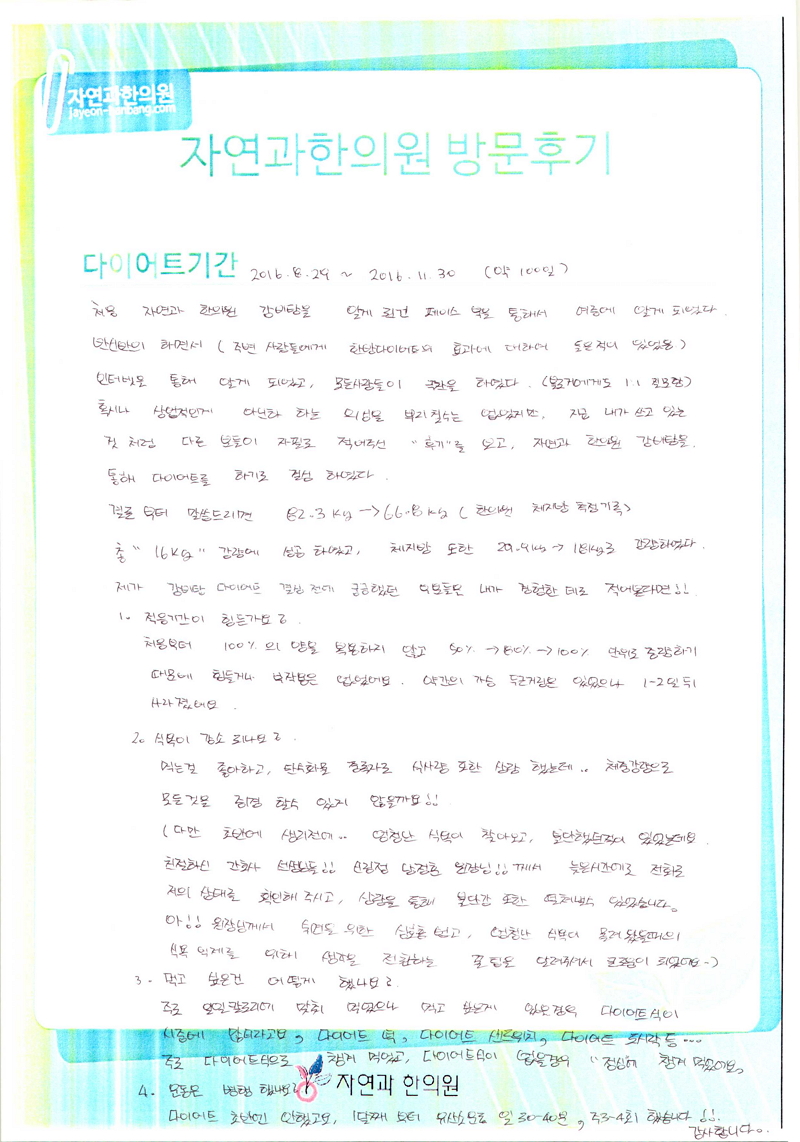 자연과한의원
jayeon-hanbang.com
자연과한의원 방문후기
다이어트기간 2016.8.29 ~ 2016.11.30 (약 100일)
처음 자연과 한의원 감비탕을 알게 된건 페이스 북을 통해서 여름에 알게 되었다.
반신반의 하면서 (주변 사람들에게 한달다이어트의 효과에 대하여 들은적이 있었음)
인터넷을 통해 알게 되었고, 모든사람들이 극찬을 하였다. (블로거에게도 1:1 질문함)
혹시나 상업적인게 아닌가 하는 의심을 뿌리칠수는 없었지만, 지금 내가 쓰고 있는
것 처럼 다른 분들이 자필로 적어주신 "후기"를 보고, 자연과 한의원 감비탕을
통해 다이어트를 하기로 결심 하였다.
결론 부터 말씀드리면 82.3kg → 66.8kg (한의원 체지방 측정기록)
총 "16kg" 감량에 성공 하였고, 체지방 또한 29.4kg → 18kg로 감량하였다.
제가 감비탕 다이어트 결심 전에 궁금했던 부분들은 내가 경험한 대로 적어본다면!!
1. 적응기간이 힘든가요?
처음부터 100%의 양을 복용하지 않고 50% → 80% → 100% 단위로 증량하기
때문에 힘들거나 부작용은 없었어요. 약간의 가슴 두근거림은 있었으나 1-2일 뒤
사라졌어요.
2. 식욕이 감소 되나요?
먹는걸 좋아하고, 탄수화물 중독자로 식사량 또한 상당 했는데.. 체중감량으로
모든것을 증명 할수 있지 않을까요!!
(다만 초반에 생리전에.. 엄청난 식욕이 찾아오고, 불안했던적이 있었는데요.
친절하신 간호사 선생님들!! 신림점 원장님!!께서 늦은시간에도 전화로
저의 상태를 확인해 주시고, 상담을 통해 불안감 또한 떨쳐낼수 있었습니다.
아!! 원장님께서 숙면을 위한 심호흡 법과, 엄청난 식욕이 몰려 왔을때의
식욕 억제를 위해 생각을 전환하는 꿀팁을 알려주셔서 큰도움이 되었어요~)
3. 먹고 싶은건 어떻게 했나요?
주로 일일칼로리에 맞춰 먹었으나 먹고 싶은게 있을경우 다이어트식이
시중에 많더라고요, 다이어트 떡, 다이어트 샌드위치, 다이어트 도시락 등...
주로 다이어트식으로 챙겨 먹었고, 다이어트식이 없을경우 "점심에 챙겨 먹었어요.
4. 운동은 병행 했나요?
자연과 한의원
다이어트 초반엔 안했고요, 1달째 부터 유산소운동 일 30-40분, 주3-4회 했습니다!!
감사합니다.